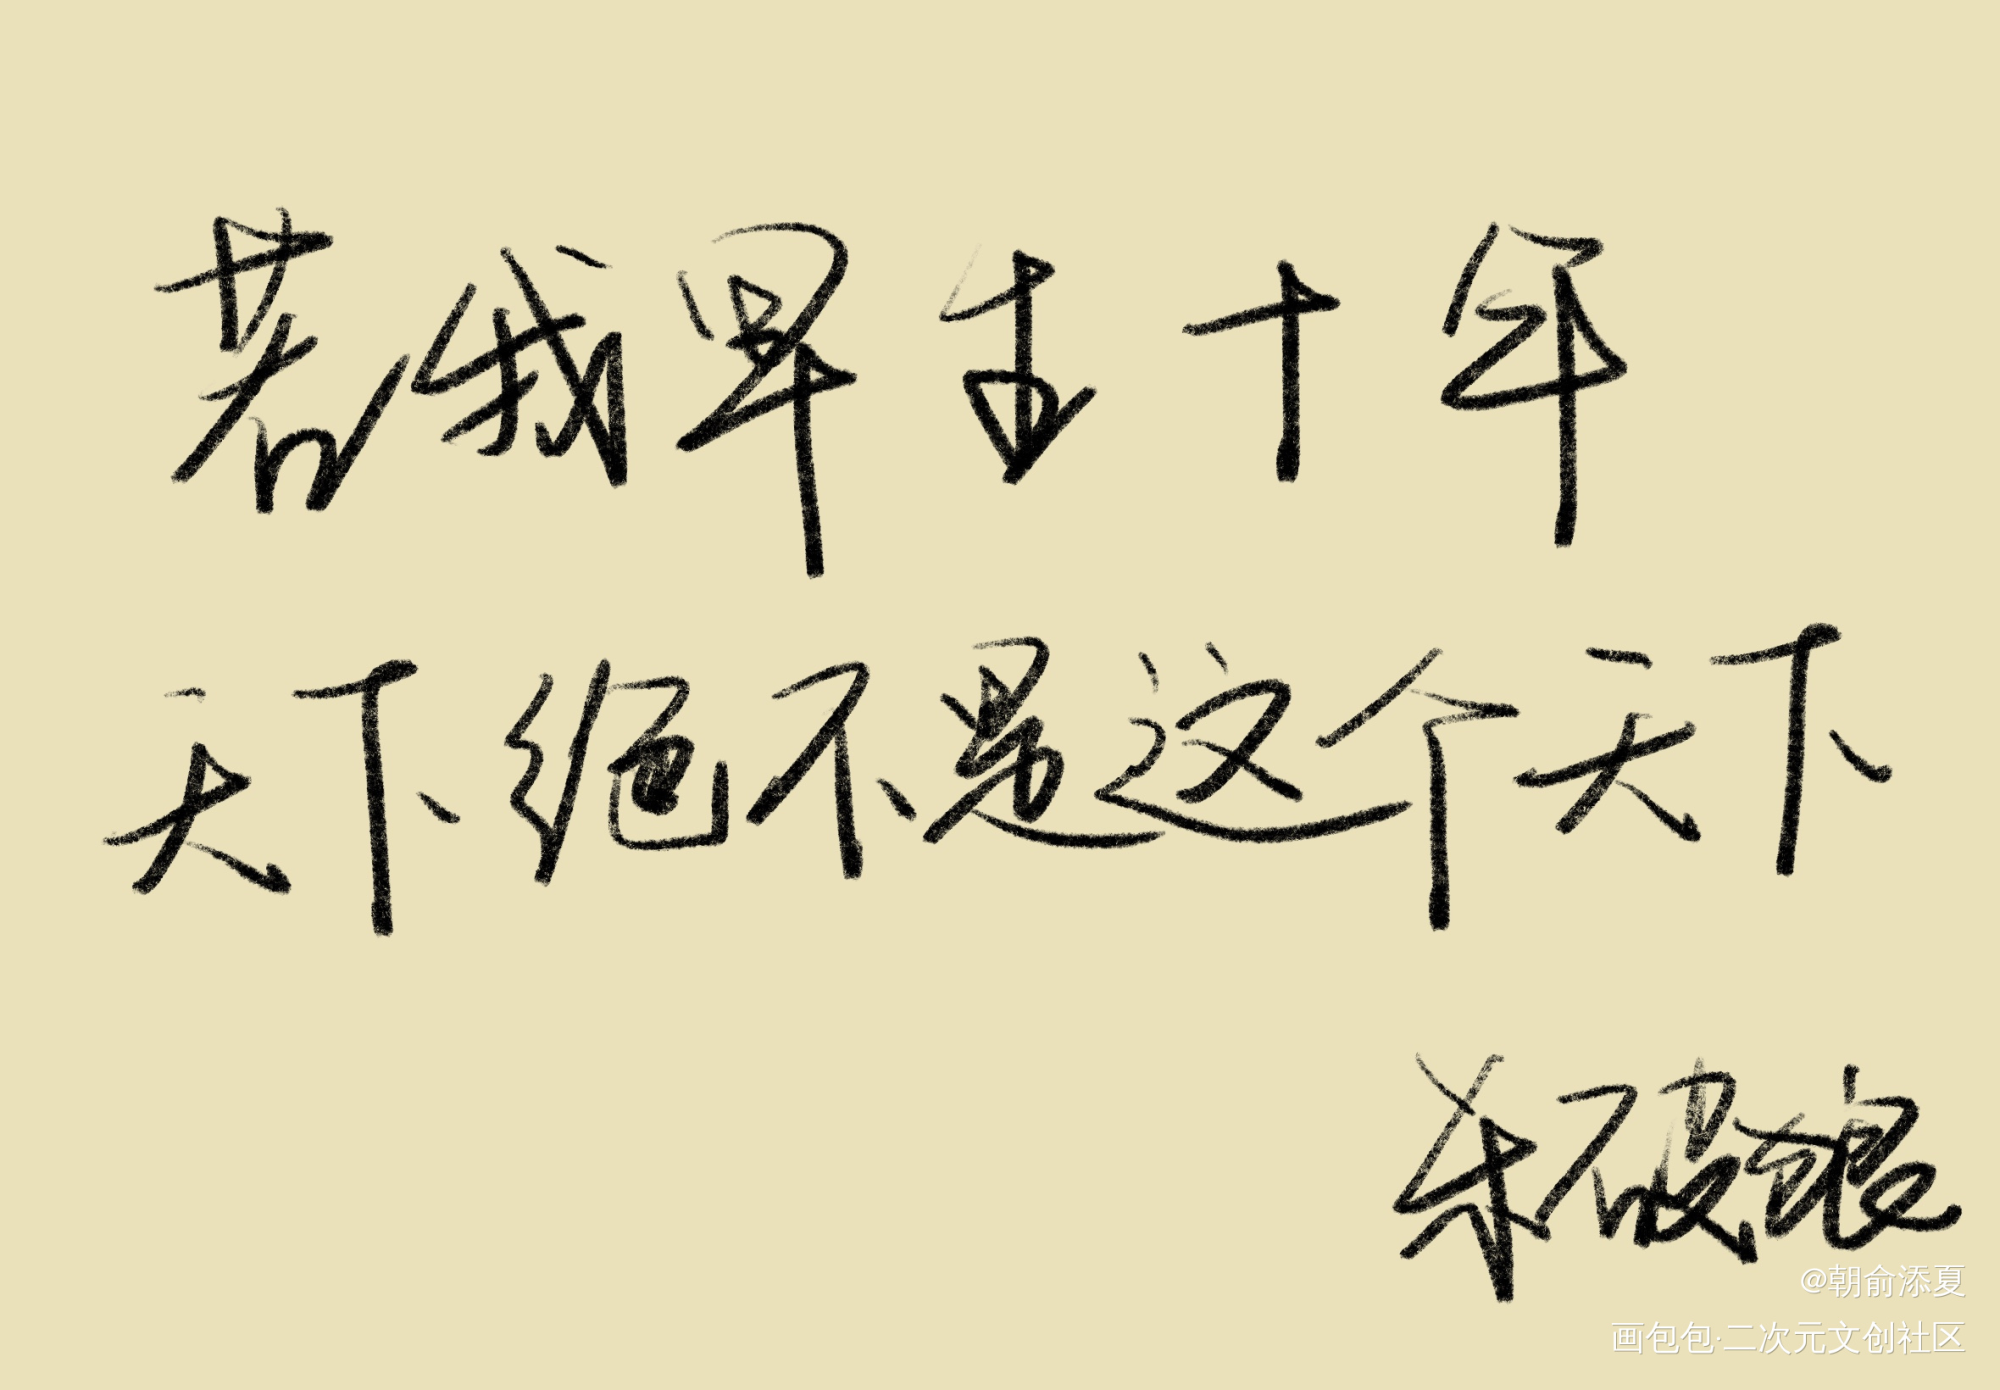 若我早生十年
天下绝不是这个天下
杀破狼
@朝俞添夏
画包包·二次元文创社区